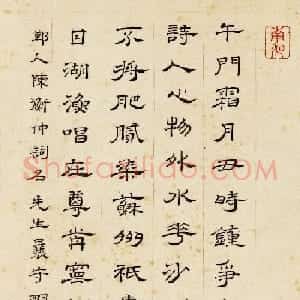 午門霜月丑時鐘爭
詩人心物外水華沙
不將肥膩染蘇州祇
日湖漁唱在尊
鄞人陳衡仲詞名 先生
Shufaziliao.com